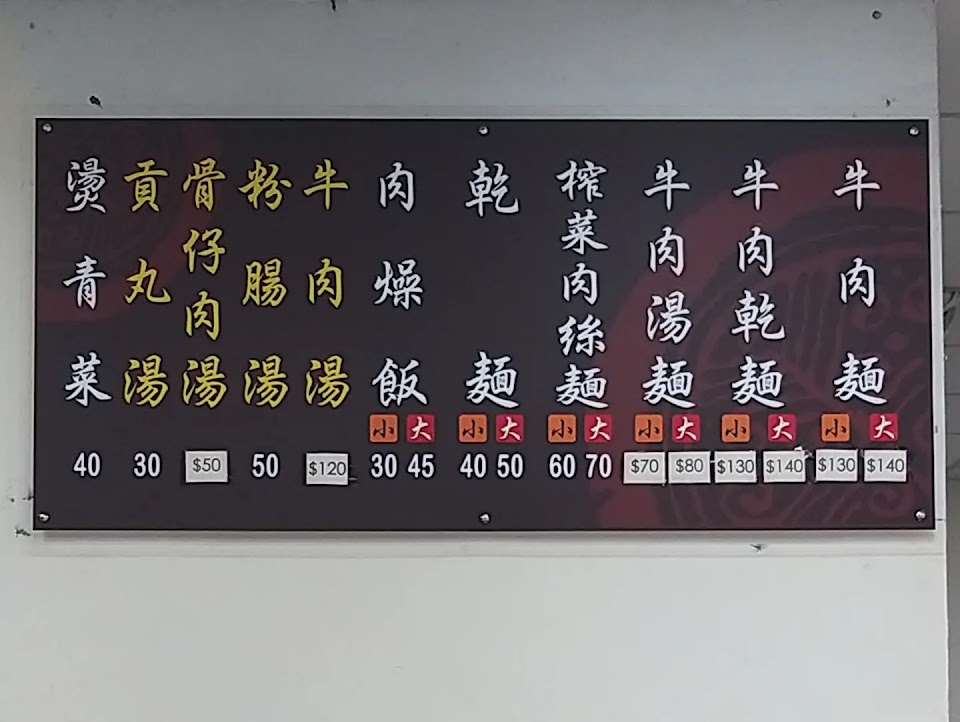 牛肉麵 小 $130 大 $140
牛肉乾麵 小 $130 大 $140
牛肉湯麵 小 $70 大 $80
榨菜肉絲麵 小 60 大 70
乾麵 小 40 大 50
肉燥飯 小 30 大 45
牛肉湯 $120
粉腸湯 50
骨仔肉湯 $50
貢丸湯 30
燙青菜 40